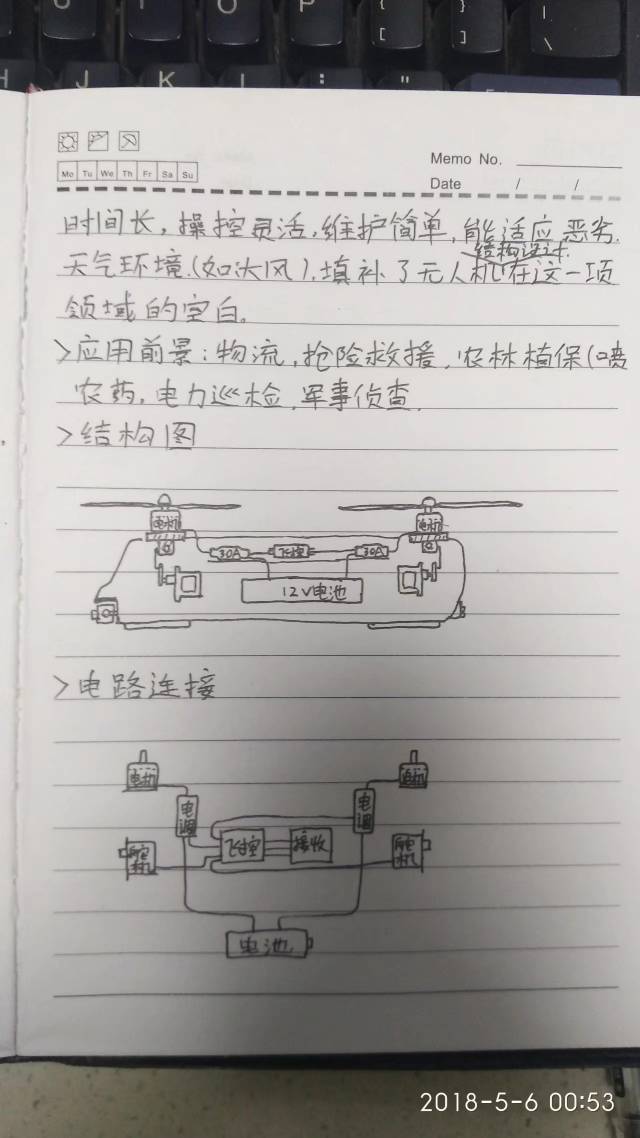 U I O P { [ } ] | \
H J K L : ; " '
Memo No.
Mo Tu We Th Fr Sa Su
Date / /
时间长，操控灵活，维护简单，能适应恶劣
结构设计
天气环境（如大风），填补了无人机在这一项
领域的空白。
>应用前景：物流，抢险救援，农林植保（喷
农药，电力巡检，军事侦查
>结构图
电机 电机
30A 飞控 30A
12V电池
>电路连接
电机 电机
电调 电调
舵机 飞控 接收 舵机
电池
2018-5-6 00:53